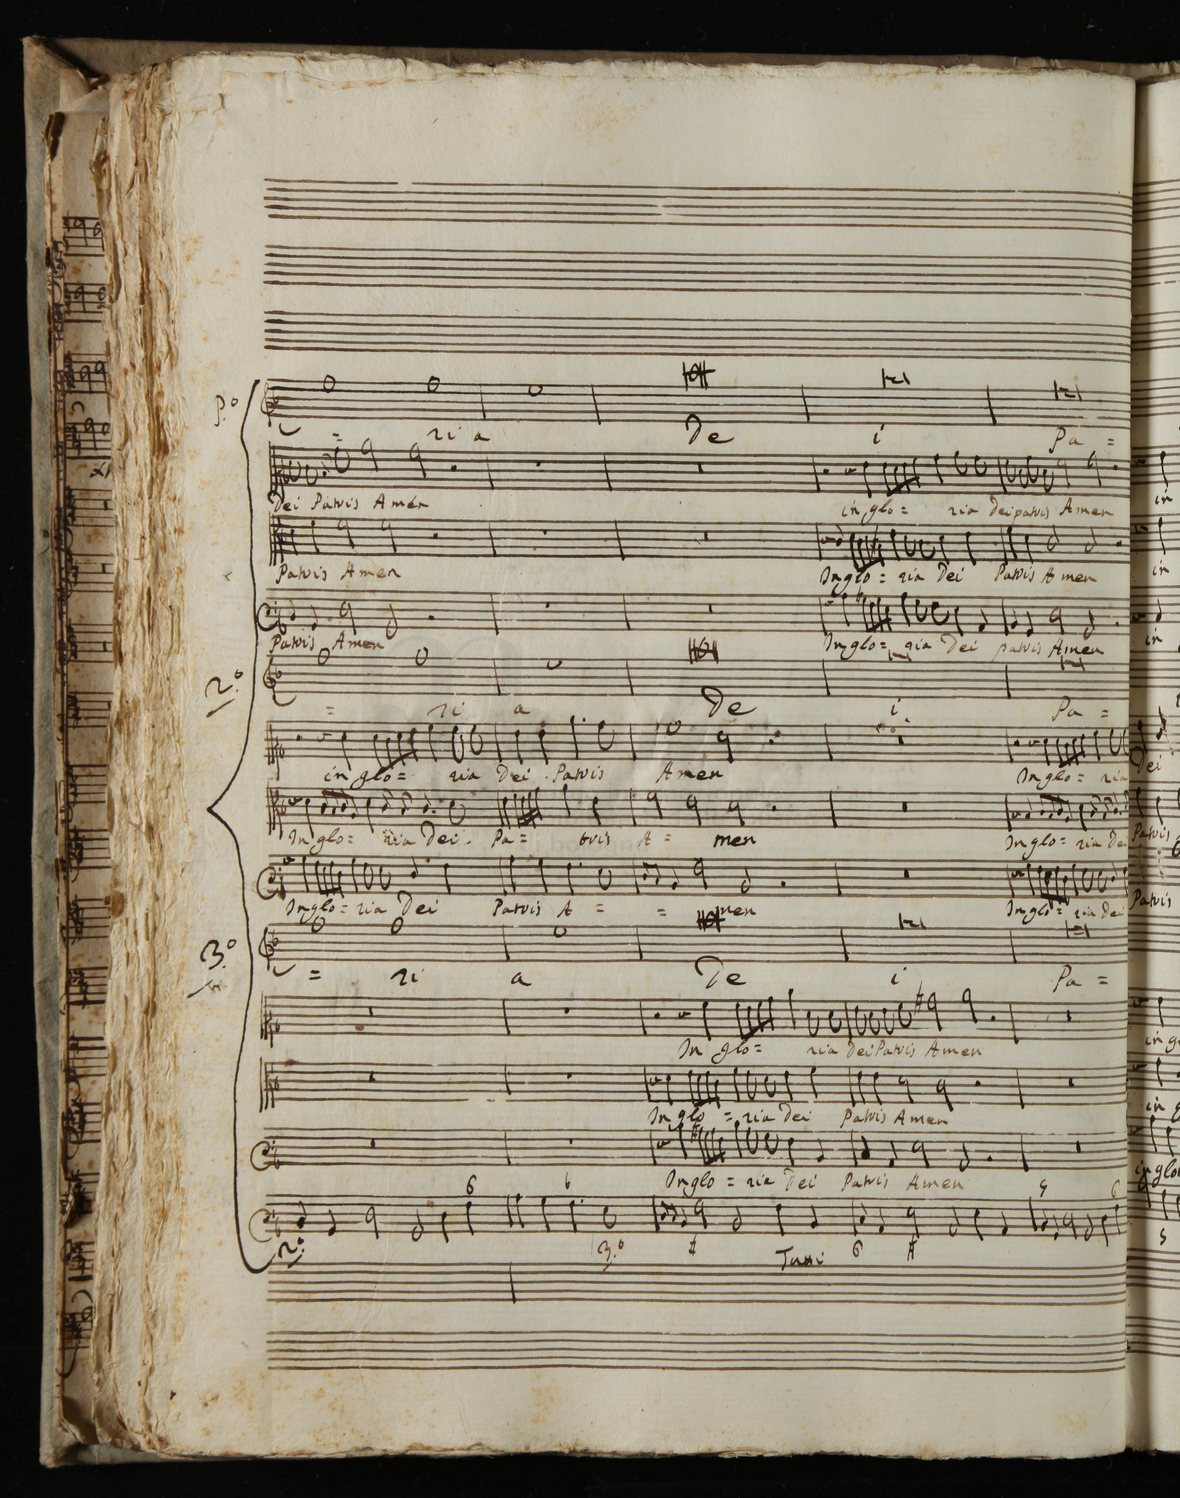 P.º
= ri a De i Pa =
Dei Patris Amen in glo = ria Dei patris Amen
Patris Amen In glo = ria Dei Patris Amen
Patris Amen In glo = ria Dei patris Amen
2.º
= ri a De i Pa =
in glo = ria Dei Patris Amen In glo = ria
In glo = ria Dei. Pa = tris A = men In glo = ria Dei
In glo = ria Dei Patris A = = men In glo = ria Dei
3.º
= ri a De i Pa =
In glo = ria Dei Patris Amen
In glo = ria Dei Patris Amen
In glo = ria Dei Patris Amen
6 6
2.º 3.º Tutti 6
in
in
in
Dei
Patris
Patris
in
in glo